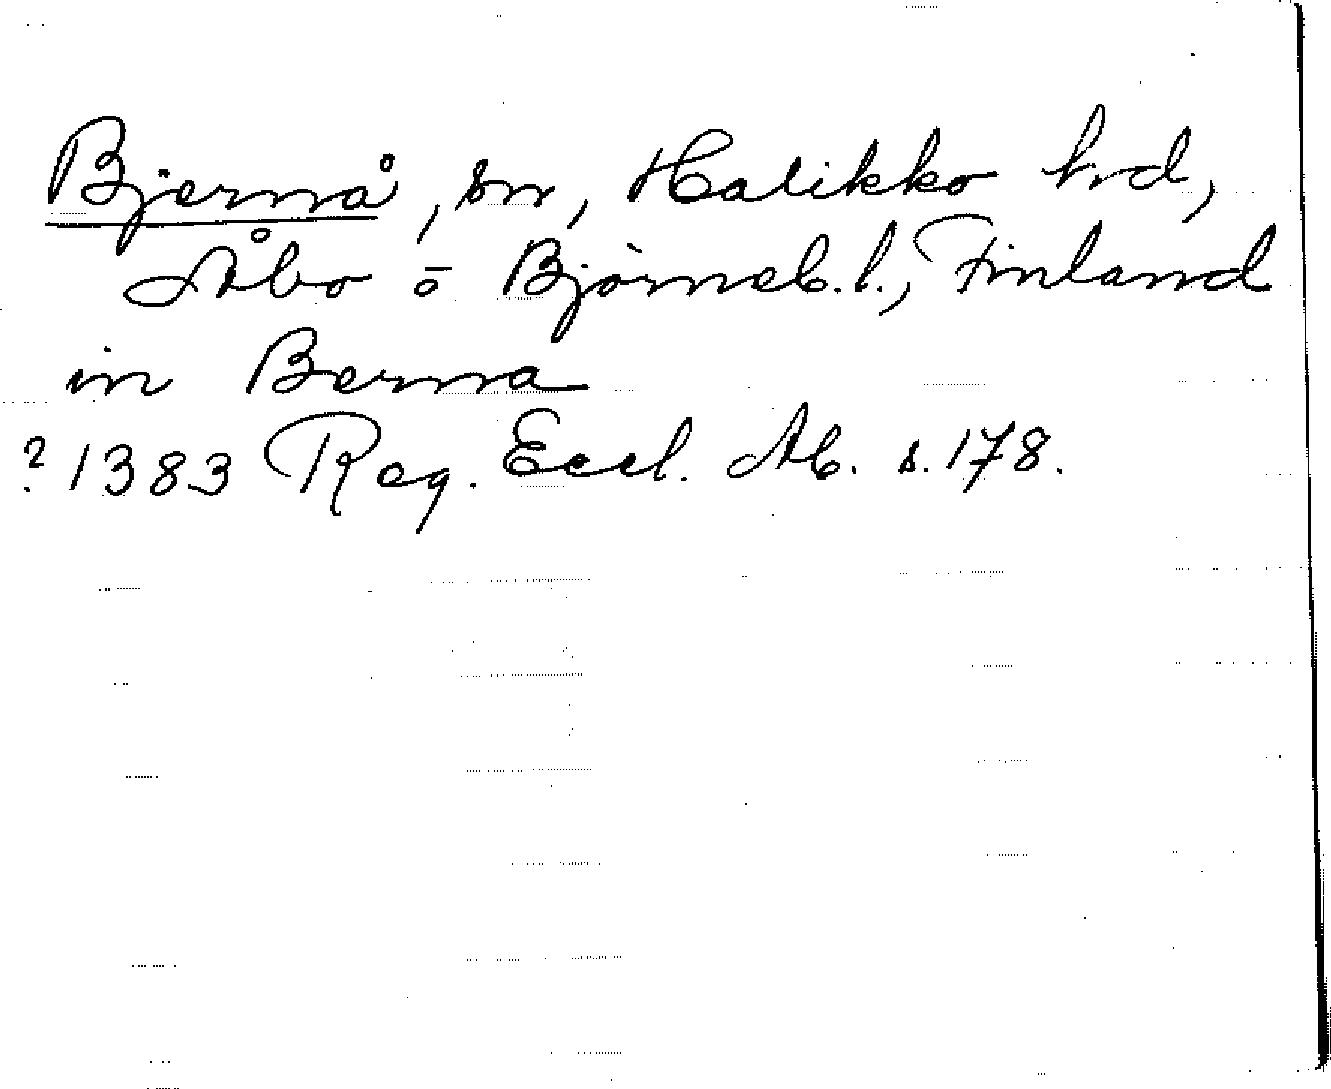 Bjernå, sn, Halikko hrd,
Åbo o Björneb. l., Finland
in Berna
? 1383 Reg. Eccl. Ab. s. 178.